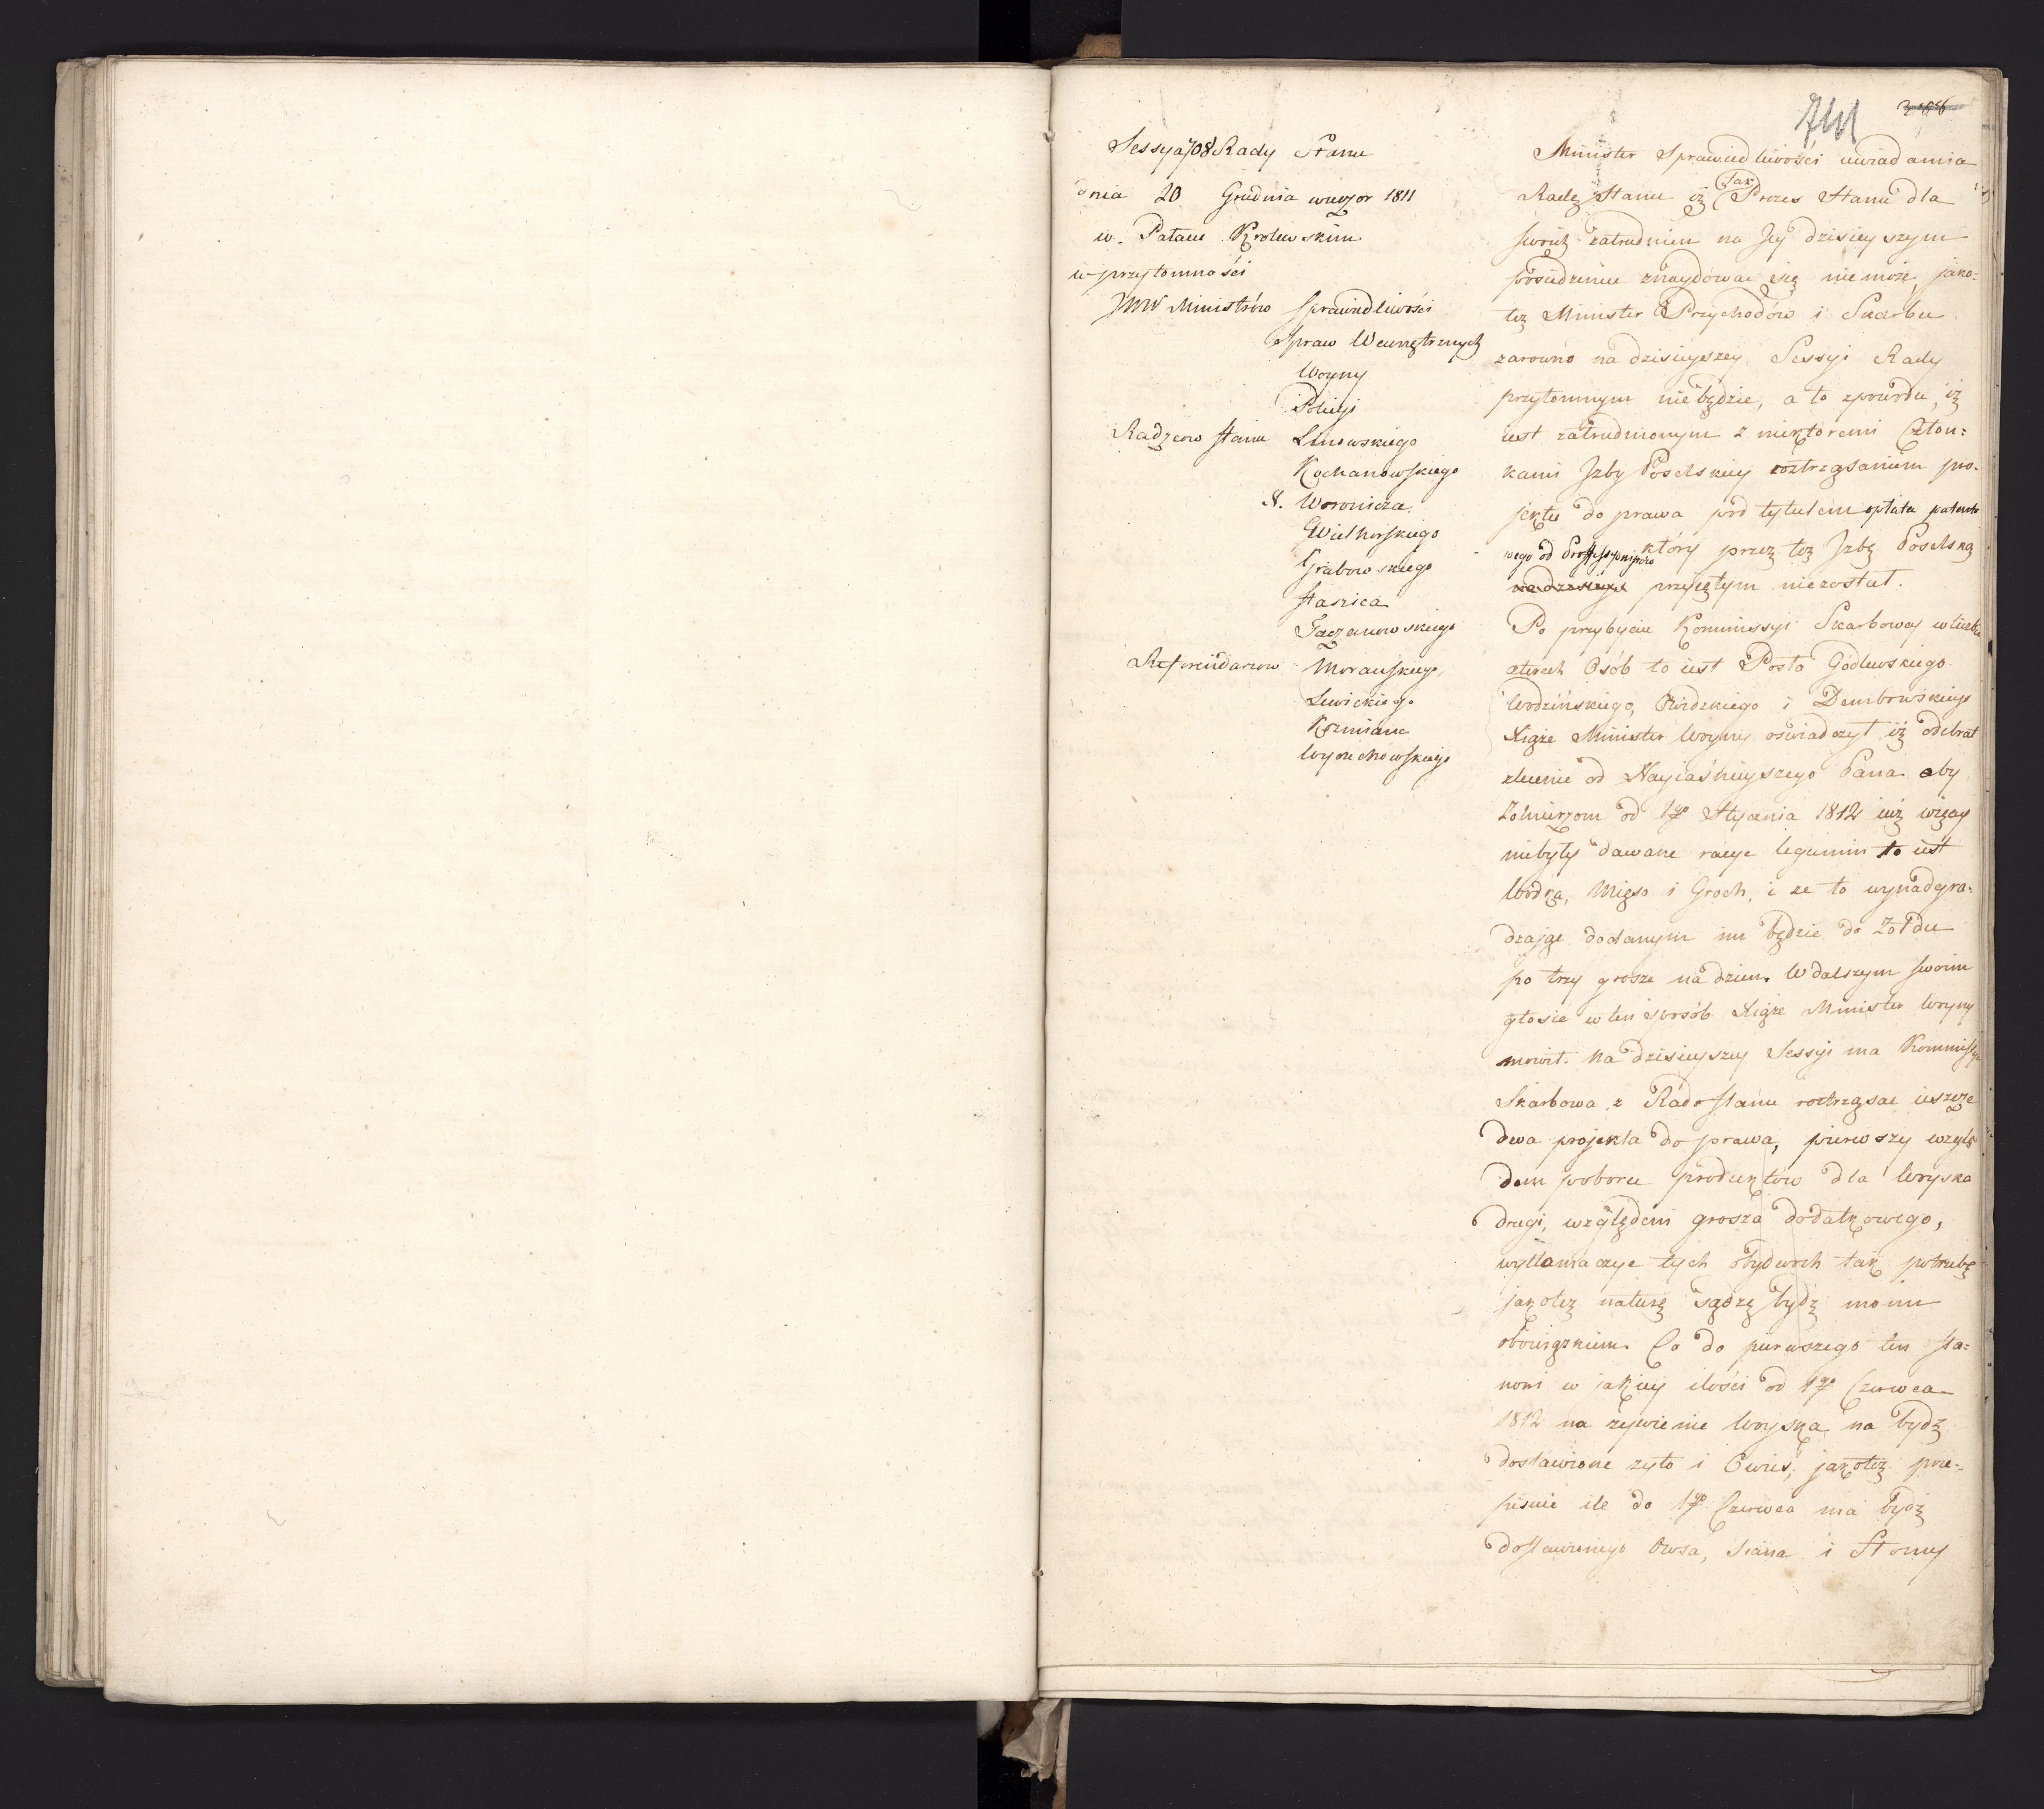 741
Sessya 708 Rady Stanu
dnia 20 Grudnia wieczor 1811
w Pałacu Krolewskim
w przytomności
JWW Ministrów Sprawiedliwości
Spraw Wewnętrznych
Woyny
Policyi
Radzcow Stanu Linowskiego
Kochanowskiego
X. Woronicza
Wielhorskiego
Grabowskiego
Staszica
Taczanowskiego
Referendarzow Morawskiego
Lewickiego
Kozmiana
Wyczechowskiego
Minister Sprawiedliwości uwiadamia
Radę Stanu iż Jak Prezes Stanu dla
swoich zatrudnien na Jey dzisieyszym
posiedzeniu znaydować się niemoże, jako-
też Minister Przychodów i Skarbu
zarowno na dzisieyszey Sessyi Rady
przytomnym niebędzie, a to zpowodu, iż
iest zatrudnionym z niektoremi Człon-
kami Izby Poselskiey roztrząsaniem pro-
jektu do prawa pod tytułem opłata patento
wego od Professyonistów który przez też Izbę Poselską
na dzisieys przyiętym niezostał.
Po przybyciu Kommissyi Skarbowey w liczbie
czterech Osób to iest Posła Godlewskiego
Wodzińskiego, Gwidzkiego i Dembowskiego
Xiąże Minister Woyny oświadczył, iż odebrał
zlecenie od Nayiaśnieyszego Pana aby
Żołnierzom od 1go Stycznia 1812 już więcey
niebyły dawane racye legumin to iest
Wodka, Mięso i Groch, i ze to wynadgra-
dzając dodanym im będzie do Żołdu
po trzy grosze na dzien. W dalszym swoim
głosie w ten sposób Xiąże Minister Woyny
mowił. Na dzisieyszey Sessyi ma Kommissya
Skarbowa z Radą Stanu roztrząsac ieszcze
dwa projekta do prawa, pierwszy wzglę
dem poboru produktów dla Woyska
drugi, względem grosza dodatkowego,
wytłomaczyc tych obydwoch tak potrzebę
jakoteż naturę sądzę bydz moim
obowiązkiem. Co do pierwszego ten sta-
nowi w jakiey ilości od 1go Czerwca
1812 na zywienie Woyska ma bydź
dostawione zyto i Owies, jakoteż prze-
pisuie ile do 1go Czerwca ma bydź
dostawionego Owsa, Siana i Słomy